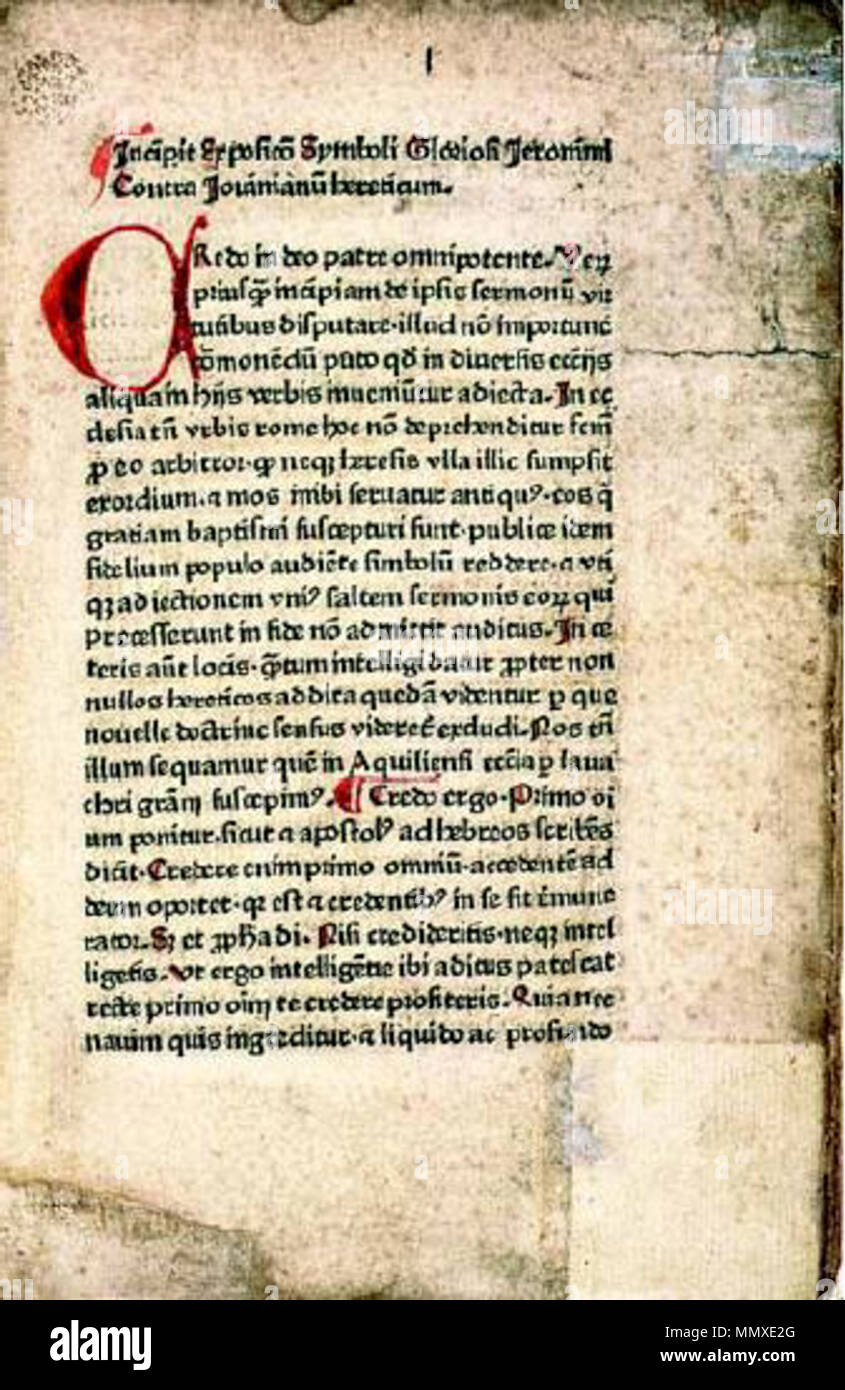 I
Incipit Exposicō Symboli Gloriosi Jeronimi
Contra Jovinianū hereticum.
CRedo in deo patre omnipotente. Veꝝ
priusꝙ̄ incipiam de ipsis sermonū vir
tutibus disputare·illud nō importune
cōmonēdū puto qd̄ in diversis ecc̄ijs
aliquam hijs verbis inueniūtur adiecta. In ec
clesia tn̄ vrbis rome hoc nō deprehenditur
ꝓ eo arbitror·ꝙ neqꝫ heresis vlla illic sumpsit
exordium. a mos inibi seruatur antiquꝰ·eos q̄
gratiam baptismi suscepturi sunt·publice idem
fidelium populo audiēte simbolū reddere· a vti
qꝫ adiectionem vniꝰ saltem sermonis eoꝝ qui
precesserunt in fide nō admittit auditus. In ce
teris aūt locis· q̄tum intelligi datur ꝓpter non
nullos hereticos addita quedā videntur ꝑ que
nouelle doctrine sensus videret̄ excludi. Nos tn̄
illum sequamur quē in Aquiliensi ecc̄ia ꝑ laua
chri grām suscepimꝰ. ¶ Credo ergo· Primo oī
um ponitur·sicut a apostolꝰ ad hebreos scribēs
dicit· Credere enim primo omniū·accedentē ad
deum oportet· qꝛ est a credentibꝰ in se fit
rator. Sꝫ et ꝓpha di. Nisi credideritis·neqꝫ intel
ligetis. Vt ergo intelligētie ibi aditus patescat
recte primo oīm te credere profiteris. Quia nec
nauim quis ingreditur· a liquido ac profundo
alamy
Image ID: MMXE2G
www.alamy.com